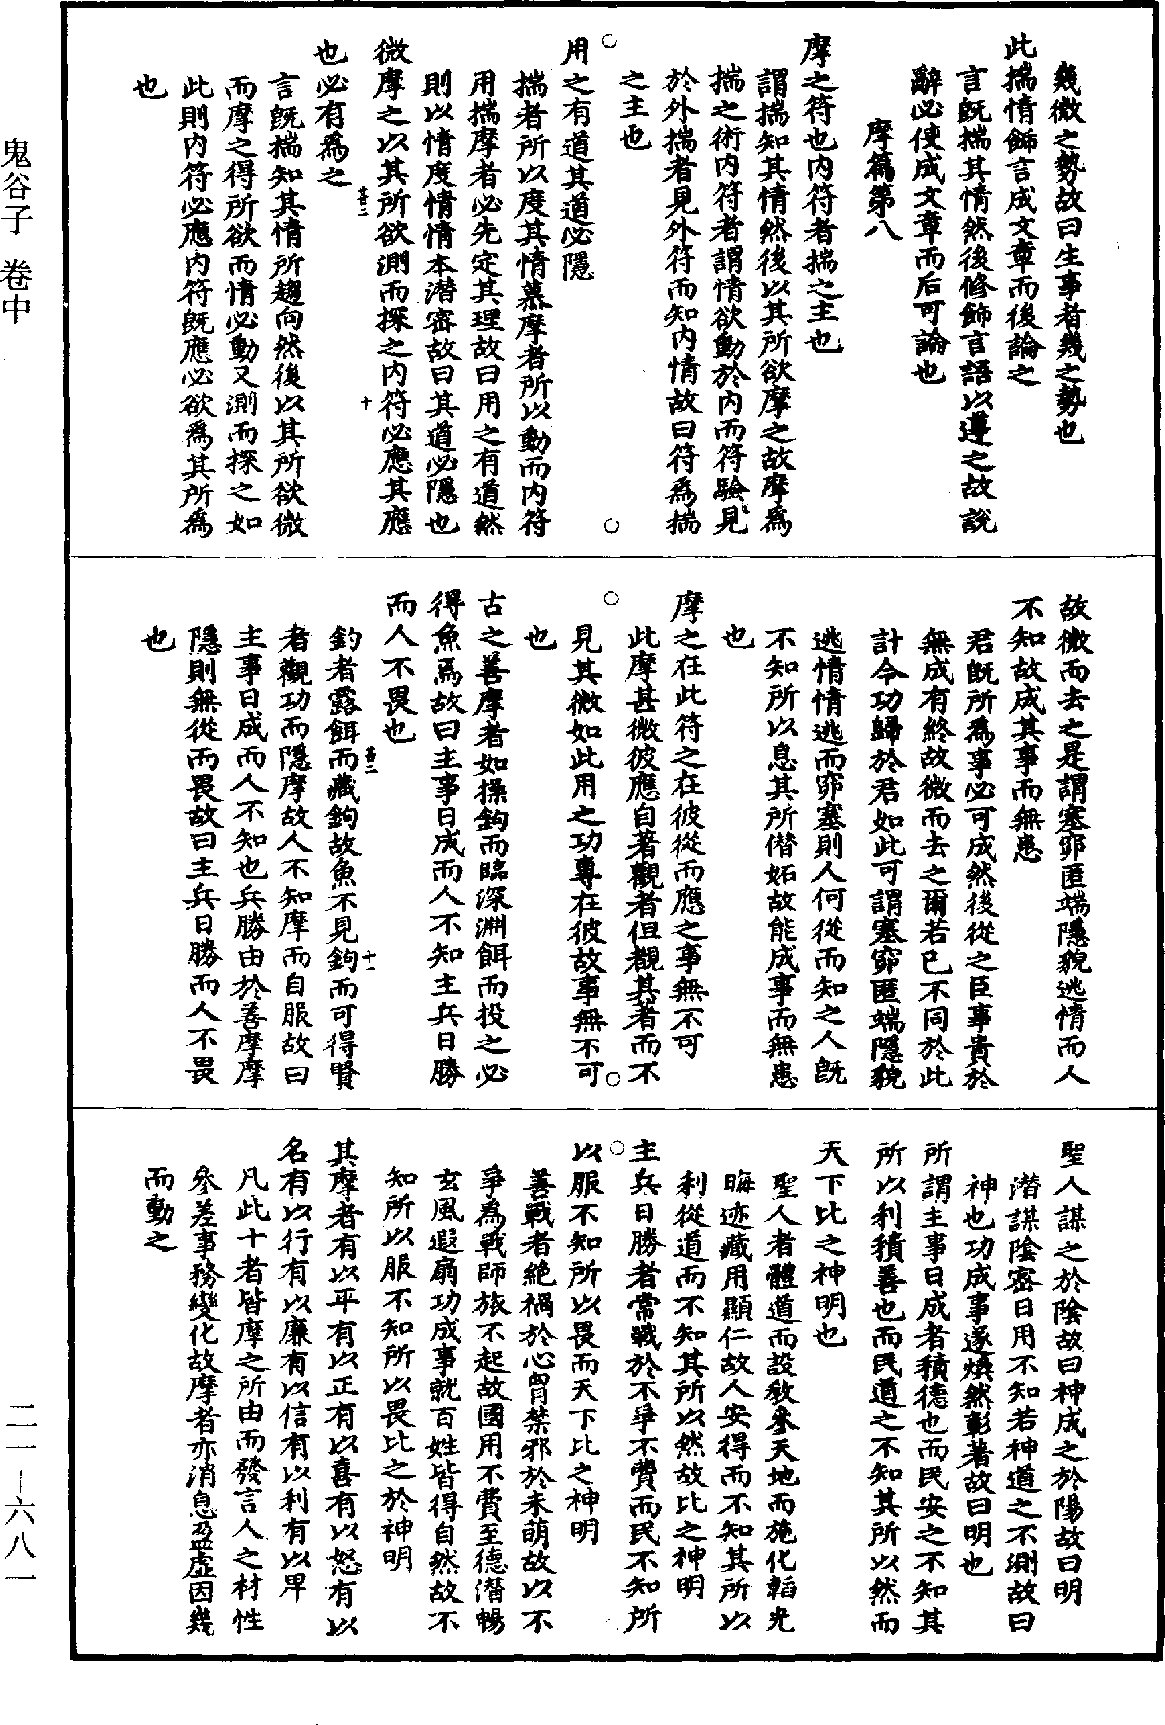 幾微之勢故曰生事者幾之勢也
此揣情飾言成文章而後論之
言旣揣其情然後修飾言語以導之故說
辭必使成文章而后可論也
摩篇第八
摩之符也内符者揣之主也
謂揣知其情然後以其所欲摩之故摩爲
揣之術内符者謂情欲動於内而符驗見
於外揣者見外符而知内情故曰符爲揣
之主也
用之有道其道必隱
揣者所以度其情慕摩者所以動而内符
用揣摩者必先定其理故曰用之有道然
則以情度情情本潛密故曰其道必隱也
微摩之以其所欲測而探之内符必應其應
也必有爲之
言旣揣知其情所趨向然後以其所欲微
而摩之得所欲而情必動又測而探之如
此則内符必應内符旣應必欲爲其所爲
也
故微而去之是謂塞窌匿端隱貌逃情而人
不知故成其事而無患
君旣所爲事必可成然後從之臣事貴於
無成有終故微而去之爾若已不同於此
計令功歸於君如此可謂塞窌匿端隱貌
逃情情逃而窌塞則人何從而知之人旣
不知所以息其所僭妬故能成事而無患
也
摩之在此符之在彼從而應之事無不可
此摩甚微彼應自著觀者但覩其著而不
見其微如此用之功專在彼故事無不可
也
古之善摩者如操鉤而臨深淵餌而投之必
得魚焉故曰主事日成而人不知主兵日勝
而人不畏也
釣者露餌而藏鉤故魚不見鉤而可得賢
者觀功而隱摩故人不知摩而自服故曰
主事日成而人不知也兵勝由於善摩摩
隱則無從而畏故曰主兵日勝而人不畏
也
聖人謀之於陰故曰神成之於陽故曰明
潛謀陰密日用不知若神道之不測故曰
神也功成事遂煥然彰著故曰明也
所謂主事日成者積德也而民安之不知其
所以利積善也而民道之不知其所以然而
天下比之神明也
聖人者體道而設教參天地而施化韜光
晦迹藏用顯仁故人安得而不知其所以
利從道而不知其所以然故比之神明
主兵日勝者常戰於不爭不費而民不知所
以服不知所以畏而天下比之神明
善戰者絶禍於心胷禁邪於未萌故以不
爭爲戰師旅不起故國用不費至德潛暢
玄風遐扇功成事就百姓皆得自然故不
知所以服不知所以畏比之於神明
其摩者有以平有以正有以喜有以怒有以
名有以行有以廉有以信有以利有以卑
凡此十者皆摩之所由而發言人之材性
參差事務變化故摩者亦消息盈虛因幾
而動之
鬼谷子 卷中
二一—六八一